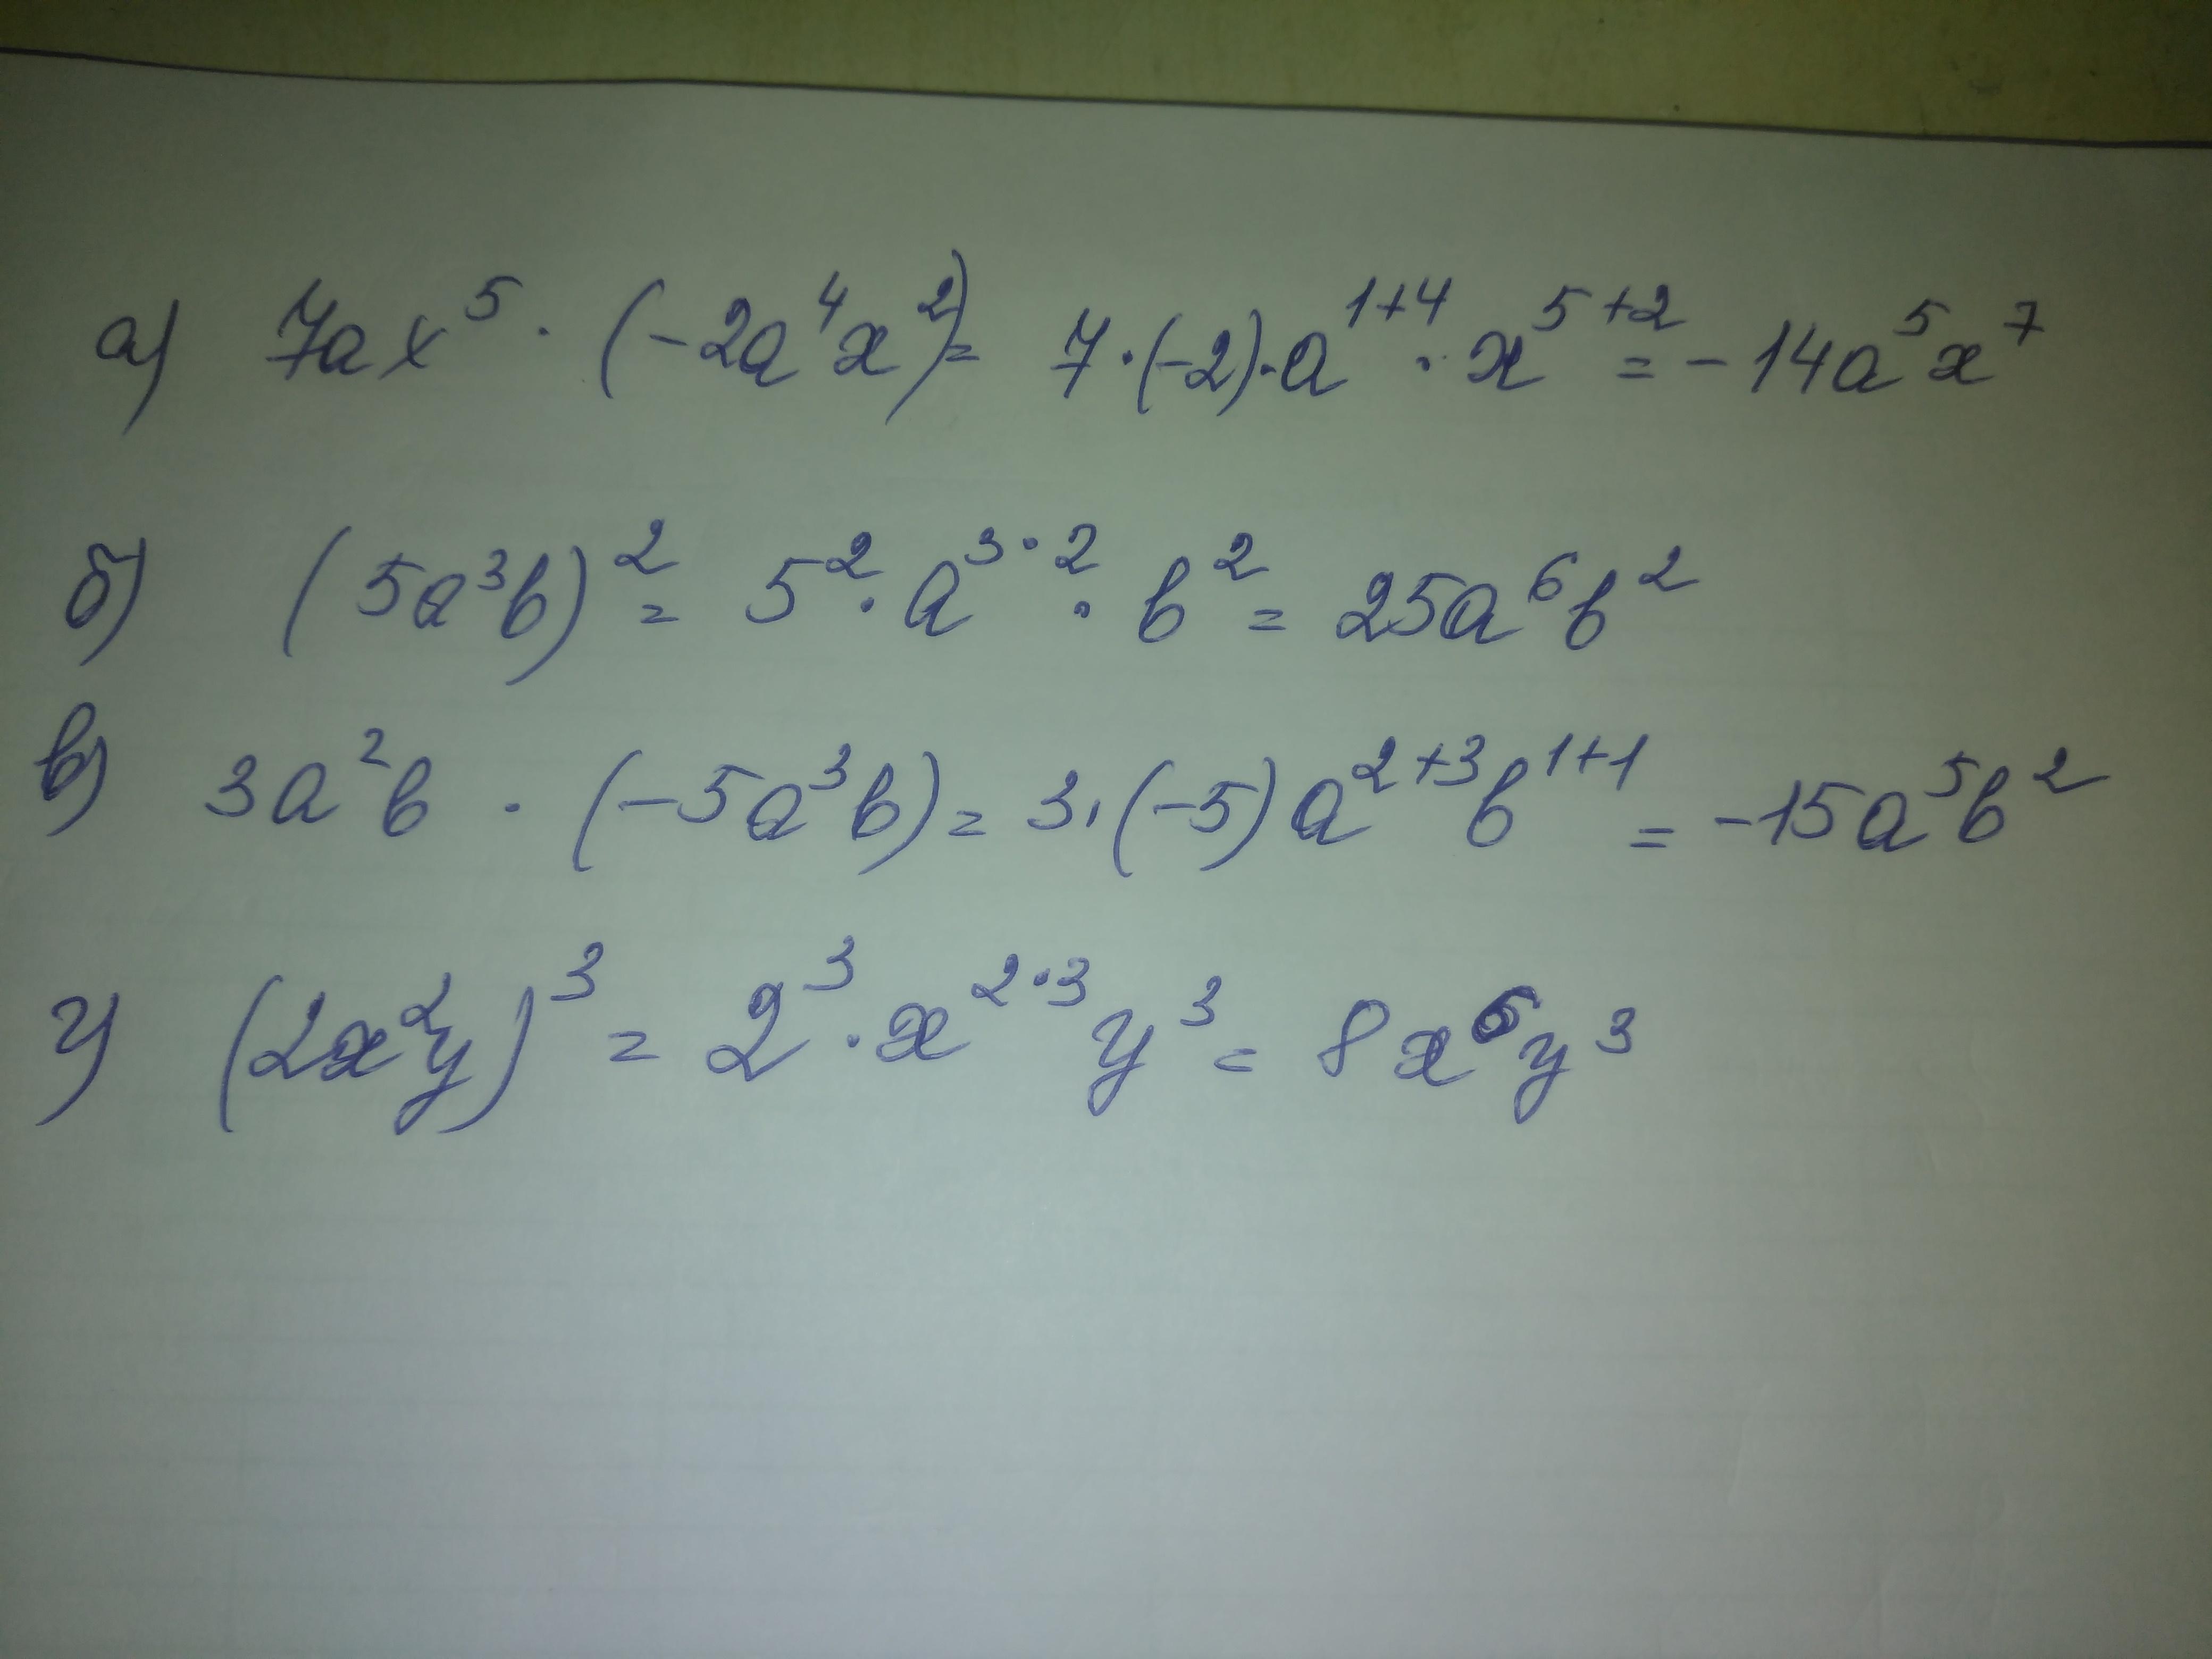 а) 7ax⁵ · (-2a⁴x²) = 7·(-2)·a¹⁺⁴ · x⁵⁺² = -14a⁵x⁷
б) (5a³b)² = 5² · a³˙² · b² = 25a⁶b²
в) 3a²b · (-5a³b) = 3·(-5)a²⁺³b¹⁺¹ = -15a⁵b²
г) (2x²y)³ = 2³ · x²˙³y³ = 8x⁶y³